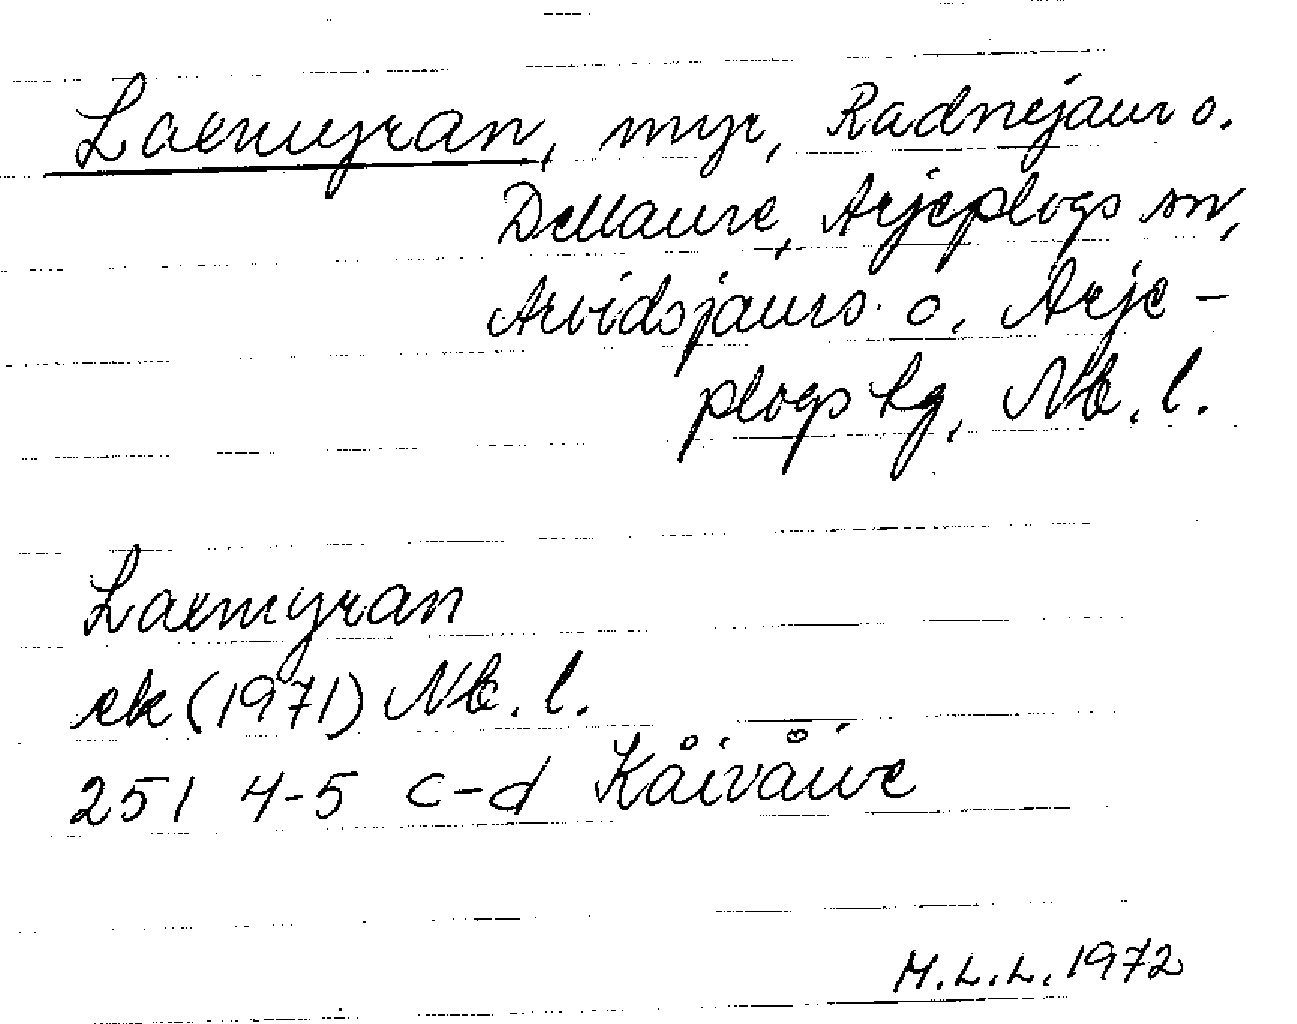 Larmyran, myr, Radnejaur o.
Dellaure, Arjeplogs sn,
Arvidsjaurs o. Arje-
plogs tg, Nb. l.
Larmyran
rk (1971) Nb. l.
251 4-5 c-d Kåivåive
M.L.L. 1972